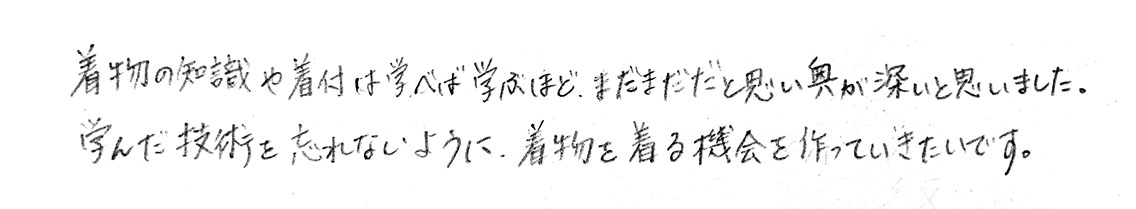 着物の知識や着付は学べば学ぶほど、まだまだだと思い奥が深いと思いました。
学んだ技術を忘れないように、着物を着る機会を作っていきたいです。